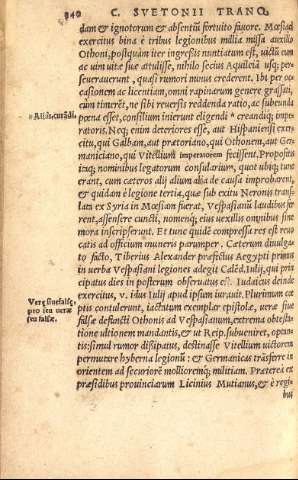 340 C. SVETONII TRANQ.
dam & ignotorum & absentũ fortuito fauore. Mœsiaci
exercitus bina è tribus legionibus millia missa auxilio
Othoni, postquàm iter ingressis nuntiatum est, uictũ eum
ac uim uitæ suæ attulisse, nihilo secius Aquileiã usq; per-
seuerauerunt, quasi rumori minus crederent. Ibi per oc-
casionem ac licentiam, omni rapinarum genere grassati,
cùm timerẽt, ne sibi reuersis reddenda ratio, ac subeunda
pœna esset, consilium inierunt eligendi * creandiq; impe-
ratoris. Neq; enim deteriores esse, aut Hispaniensi exer-
citu, qui Galbam, aut prætoriano, qui Othonem, aut Ger-
maniciano, qui Vitellium imperatorem fecissent. Propositis
itaq; nominibus legatorum consularium, quot ubiq; tunc
erant, cùm cæteros alij alium alia de causa improbarent,
& quidam è legione tertia, quæ sub exitu Neronis trans-
lata ex Syria in Mœsiam fuerat, Vespasianũ laudibus fer-
rent, assensere cuncti, nomenq; eius uexillis omnibus sine
mora inscripserunt. Et tunc quidẽ compressa res est reuo-
catis ad officium numeris parumper. Cæterum diuulga-
to facto, Tiberius Alexander præfectus Aegypti primus
in uerba Vespasiani legiones adegit Calẽd. Iulij, qui prin-
cipatus dies in posterum obseruatus est. Iudaicus deinde
exercitus, v. idus Iulij apud ipsum iurauit. Plurimum cœ-
ptis contulerunt, iactatum exemplar epistolæ, ueræ siue
falsæ defuncti Othonis ad Vespasianum, extrema obtesta-
tione ultionem mandatis, & ut Reip. subueniret, optan-
tis: simul rumor dissipatus, destinasse Vitellium uictorem
permutare hyberna legionũ: & Germanicas trãsferre in
orientem ad securiorẽ mollioremq; militiam. Præterea ex
præsidibus prouinciarum Licinius Mutianus, & è regi-
bus
Veræ siue falsæ,
pro seu ueræ
seu falsæ.